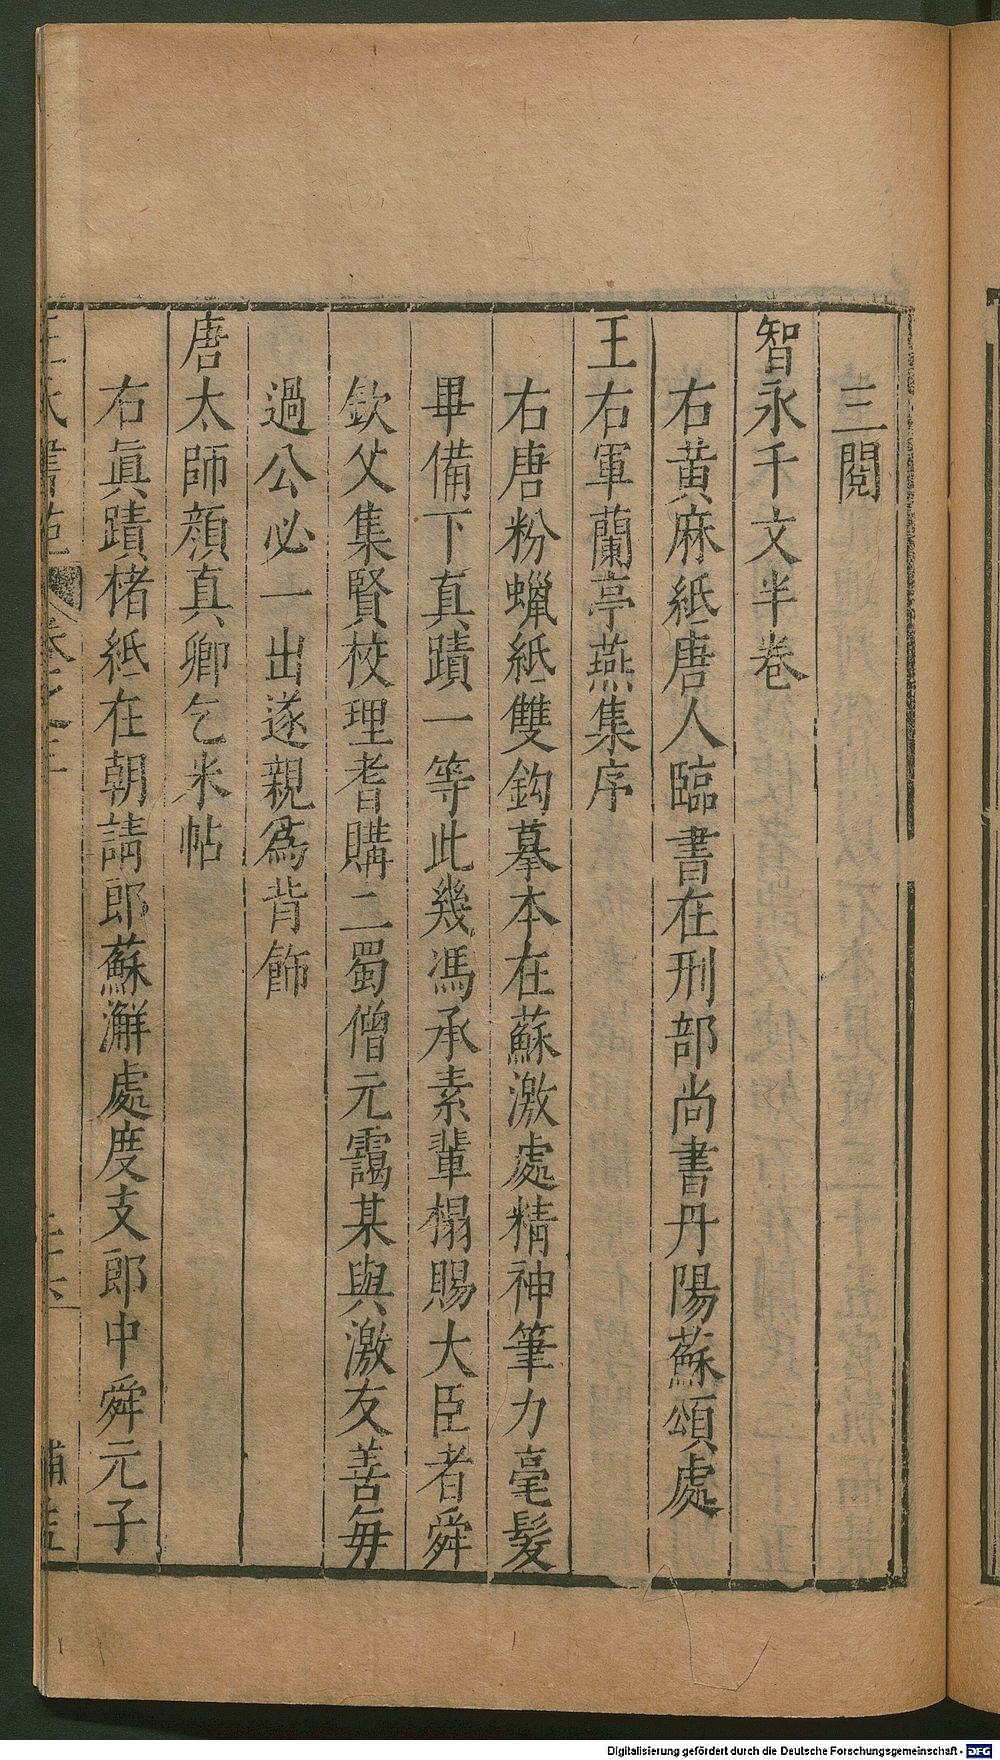 三閱
智永千文半卷
右黄麻紙唐人臨書在刑部尚書丹陽蘇頌處
王右軍蘭亭燕集序
右唐粉蠟紙雙鈎摹本在蘇激處精神筆力毫髮
畢備下真蹟一等此幾馮承素輩榻賜大臣者舜
欽父集賢校理耆購二蜀僧元靄某與激友善每
過公必一出遂親爲背飾
唐太師顔真卿乞米帖
右眞蹟楮紙在朝請郎蘇澥處度支郎中舜元子
王氏書苑 卷之
Digitalisierung gefördert durch die Deutsche Forschungsgemeinschaft - DFG